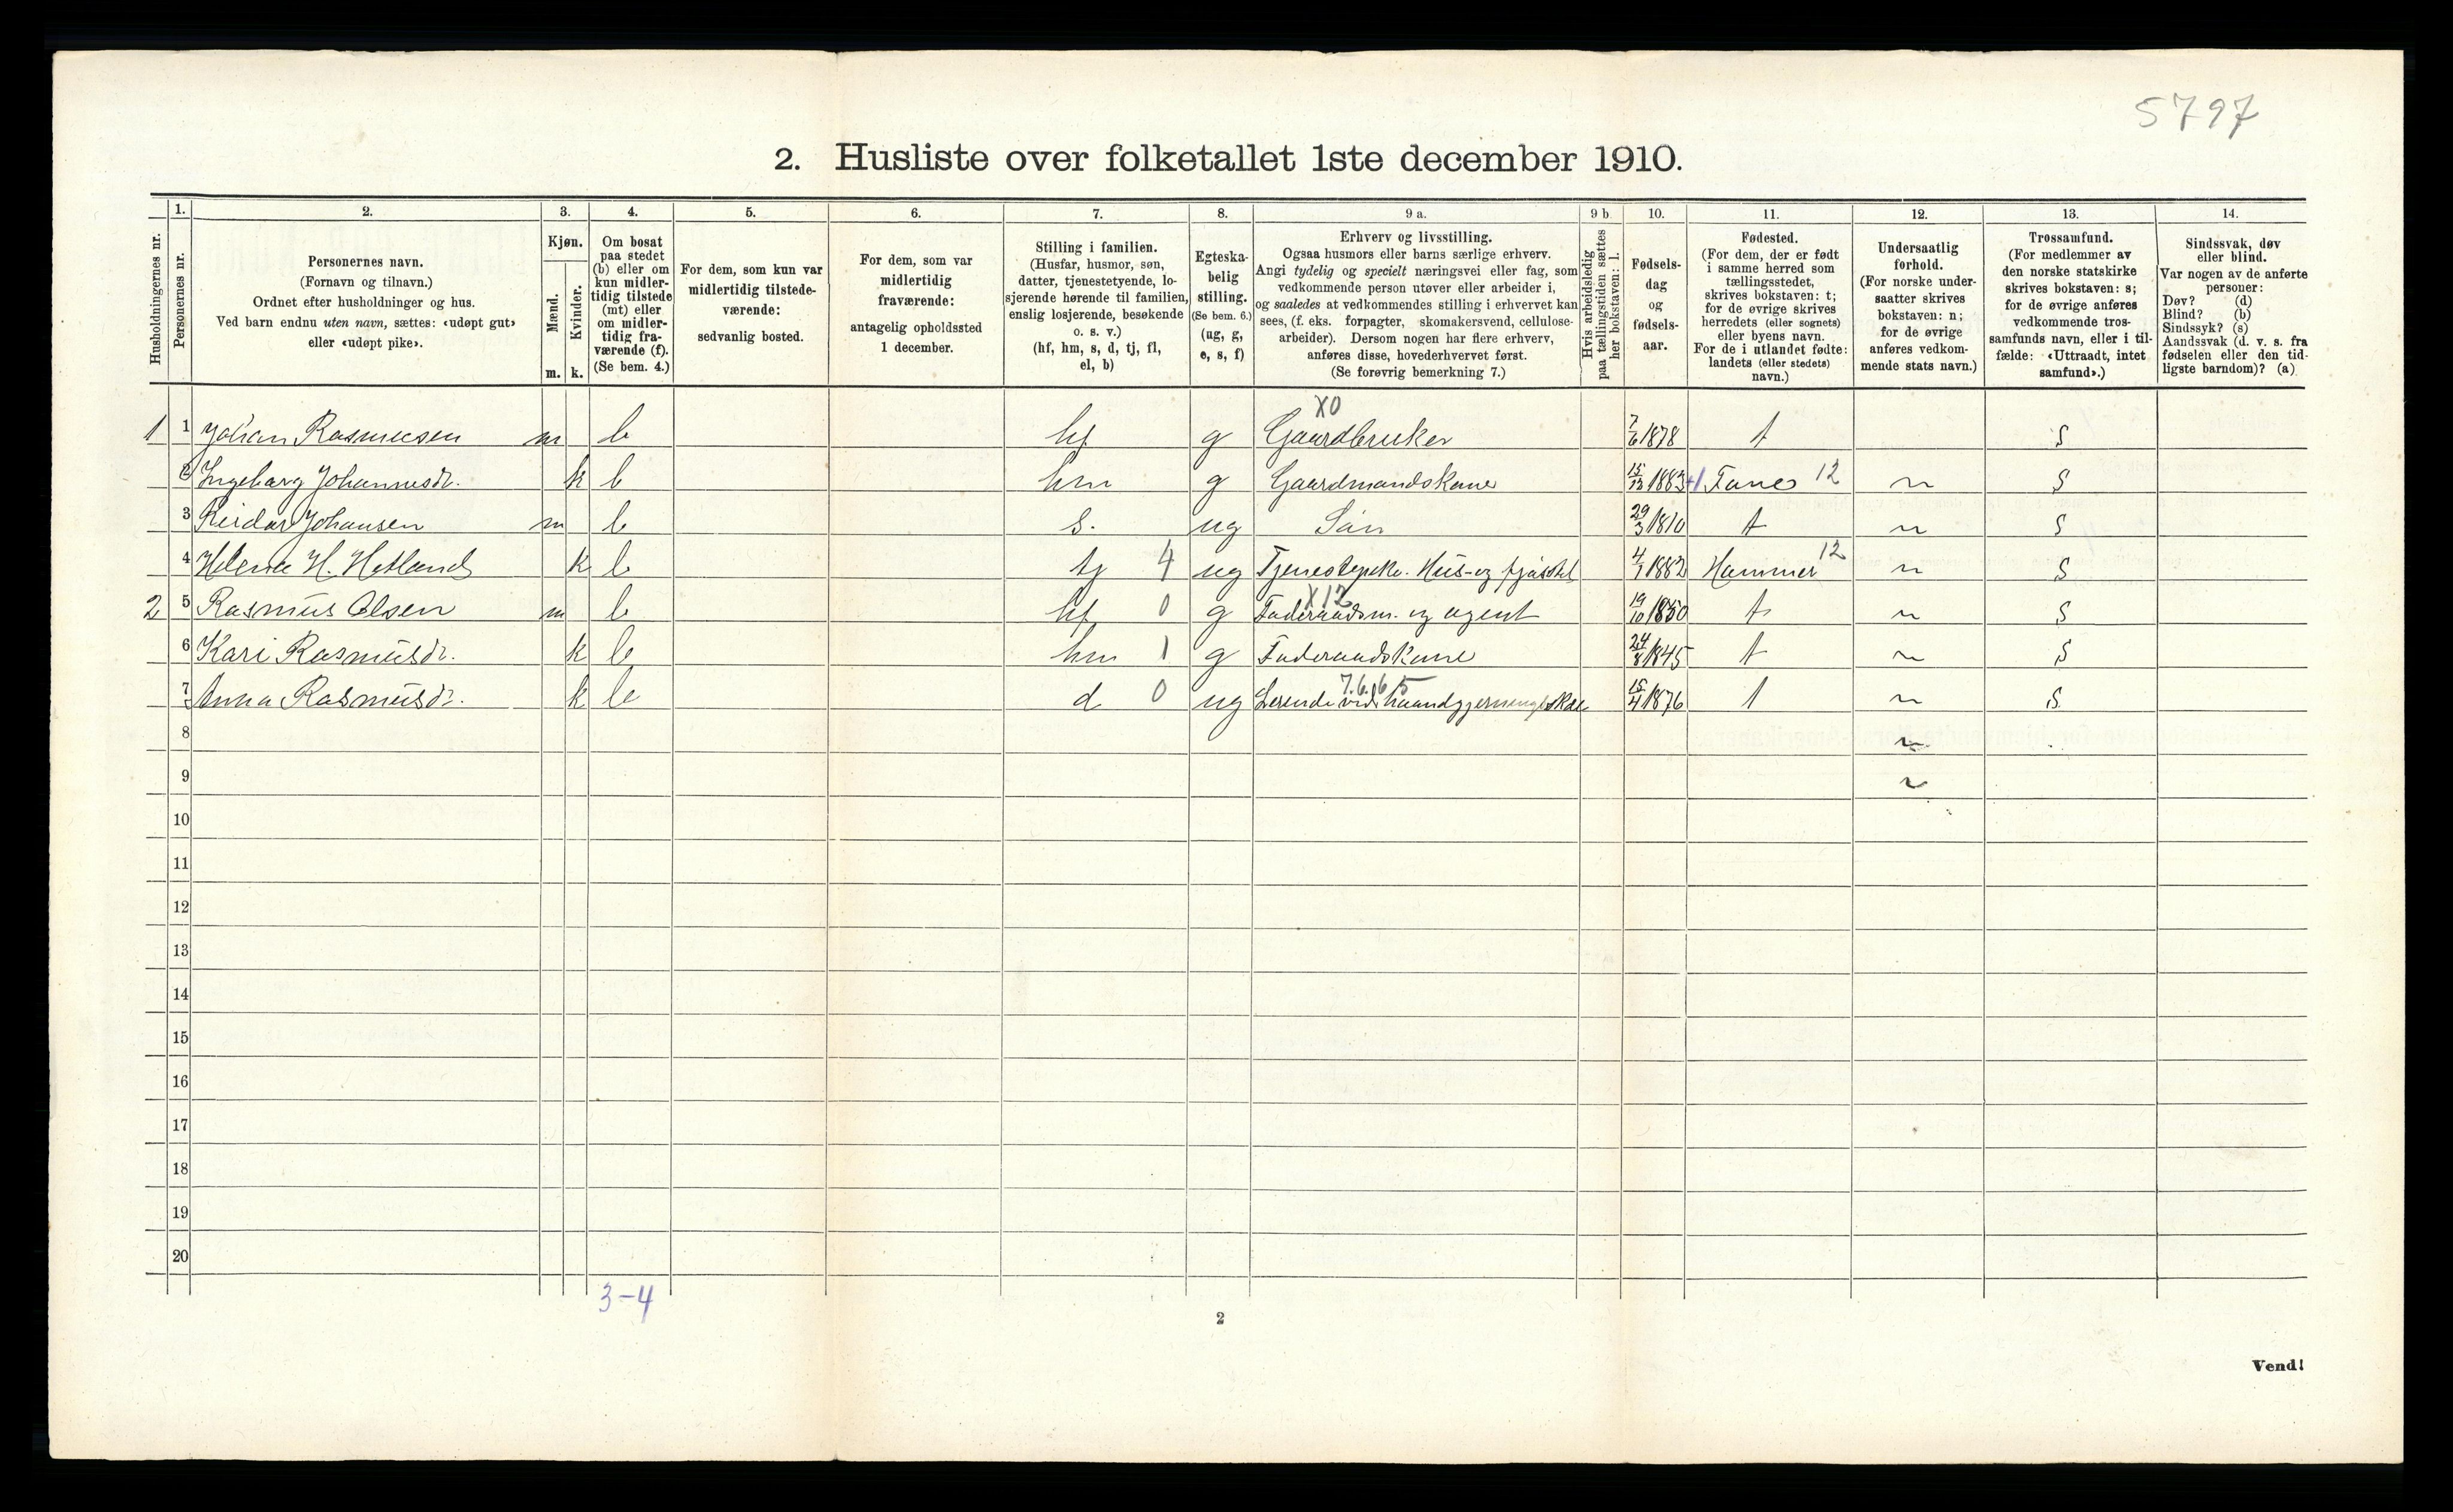 5797
2. Husliste over folketallet 1ste december 1910.
Husholdningernes nr.
1. Personernes nr.
2. Personernes navn.
(Fornavn og tilnavn.)
Ordnet efter husholdninger og hus.
Ved barn endnu uten navn, sættes: «udøpt gut»
eller «udøpt pike».
3. Kjøn.
Mænd. Kvinder.
m. k.
4. Om bosat
paa stedet
(b) eller om
kun midler-
tidig tilstede
(mt) eller
om midler-
tidig fra-
værende (f).
(Se bem. 4.)
5. For dem, som kun var
midlertidig tilstede-
værende:
sedvanlig bosted.
6. For dem, som var
midlertidig
fraværende:
antagelig opholdssted
1 december.
7. Stilling i familien.
(Husfar, husmor, søn,
datter, tjenestetyende, lo-
sjerende hørende til familien,
enslig losjerende, besøkende
o. s. v.)
(hf, hm, s, d, tj, fl,
el, b)
8. Egteska-
belig
stilling.
(Se bem. 6.)
(ug, g,
e, s, f)
9 a. Erhverv og livsstilling.
Ogsaa husmors eller barns særlige erhverv.
Angi tydelig og specielt næringsvei eller fag, som
vedkommende person utøver eller arbeider i,
og saaledes at vedkommendes stilling i erhvervet kan
sees, (f. eks. forpagter, skomakersvend, cellulose-
arbeider). Dersom nogen har flere erhverv,
anføres disse, hovederhvervet først.
(Se forøvrig bemerkning 7.)
9 b. Hvis arbeidsledig
paa tællingstiden sættes
her bokstaven: l.
10. Fødsels-
dag
og
fødsels-
aar.
11. Fødested.
(For dem, der er født
i samme herred som
tællingsstedet,
skrives bokstaven: t;
for de øvrige skrives
herredets (eller sognets)
eller byens navn.
For de i utlandet fødte:
landets (eller stedets)
navn.)
12. Undersaatlig
forhold.
(For norske under-
saatter skrives
bokstaven: n;
for de øvrige
anføres vedkom-
mende stats navn.)
13. Trossamfund.
(For medlemmer av
den norske statskirke
skrives bokstaven: s;
for de øvrige anføres
vedkommende tros-
samfunds navn, eller i til-
fælde: «Uttraadt, intet
samfund».)
14. Sindssvak, døv
eller blind.
Var nogen av de anførte
personer:
Døv? (d)
Blind? (b)
Sindssyk? (s)
Aandssvak (d. v. s. fra
fødselen eller den tid-
ligste barndom)? (a)
X0
1 1 Johan Rasmusen m b hf g Gaardbruker 7/6 1878 t S
2 Ingeborg Johannesdr. k b hm g Gaardmandskone 15/12 1883 Fane 12 n S
3 Reidar Johansen m b s. ug Sön 29/3 1810 t n S
4 Helena H. Hetland k b tj 4 ug Tjenestepike. Hus- og 4/1 1882 Hammer 12 n S
X12
2 5 Rasmus Olsen m b hf 0 g Føderaadsm. og agent 19/10 1850 t n S
6 Kari Rasmusdr. k b hm 1 g Føderaadskone 24/8 1845 t n S
7.6.6 5
7 Anna Rasmusdr. k b d 0 ug Lerende ved 15/4 1876 t n S.
8 n
9 n
10
11
12
13
14
15
16
17
18
19
20
3-4
2
Vend!